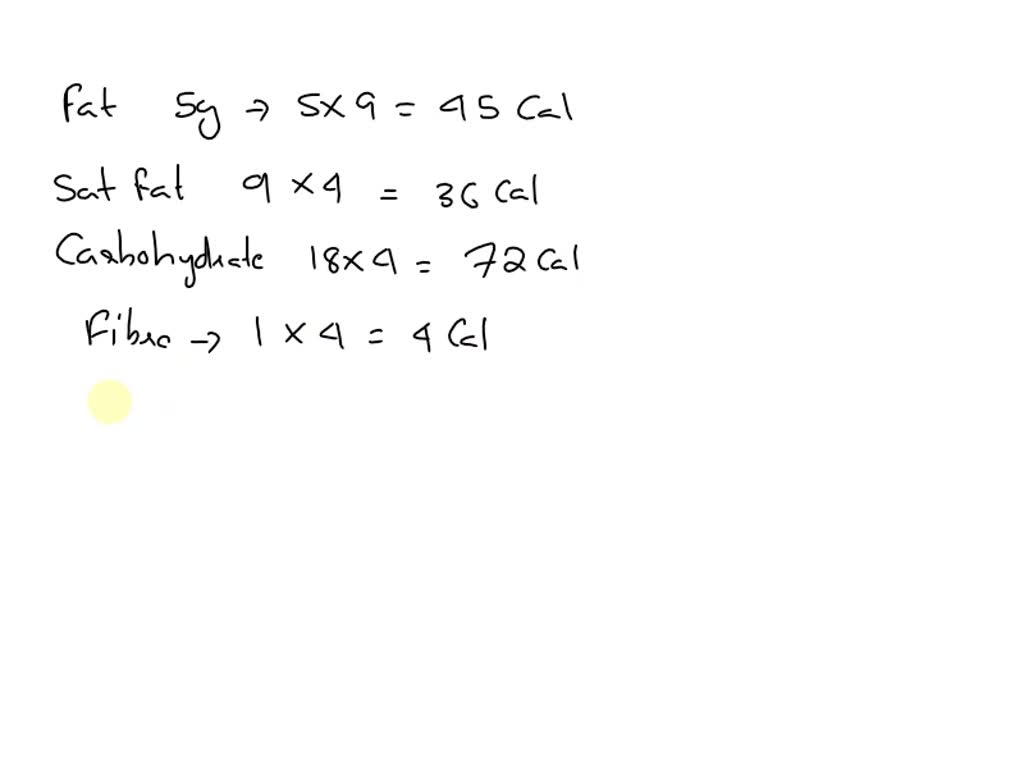 Fat 5g → 5x9 = 45 Cal
Sat fat 9 x 4 = 36 Cal
Carbohydrate 18x4 = 72 Cal
Fibre → 1 x 4 = 4 Cal